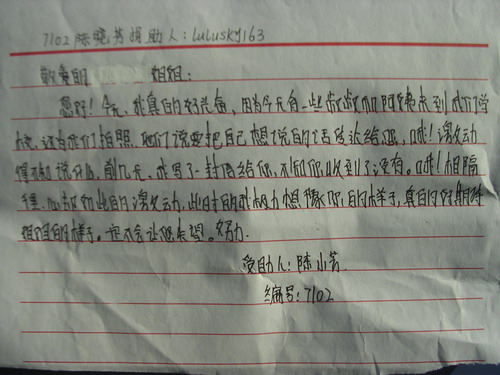 7102 陈晓芳捐助人：lulusky163
敬爱的 姐姐：
您好！今天，我真的好兴奋，因为今天有一些叔叔和阿姨来到我们学
校，还与我们拍照，他们说要把自己想说的话传送给您，哦！激动
得不知说什么，前几天，我写了一封信给你，不知你收到了没有。哦！相隔
程，心却如此的激动，此时的我极力想像你的样子，真的好期待
姐姐的样子。也不会让您失望。努力
受助人：陈小芳
编号：7102